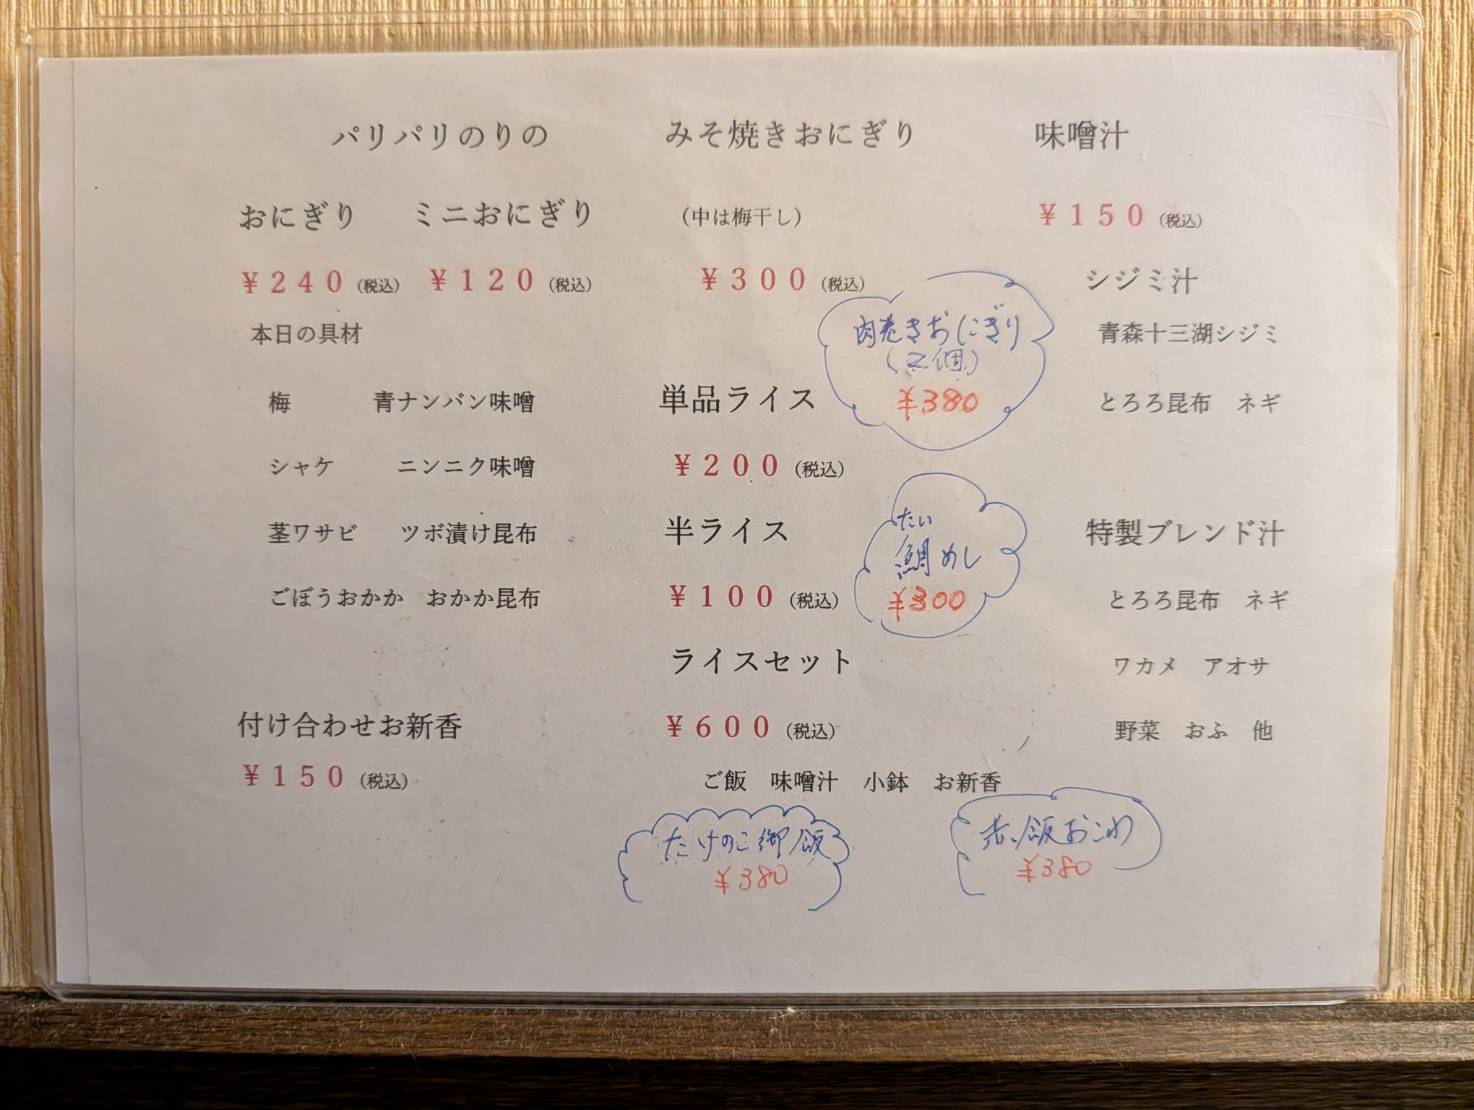 パリパリのりの
おにぎり　ミニおにぎり
¥240（税込）　¥120（税込）
本日の具材
梅　青ナンバン味噌
シャケ　ニンニク味噌
茎ワサビ　ツボ漬け昆布
ごぼうおかか　おかか昆布
付け合わせお新香
¥150（税込）
みそ焼きおにぎり
（中は梅干し）
¥300（税込）
肉巻きおにぎり
（2個）
¥380
単品ライス
¥200（税込）
半ライス
¥100（税込）
たい
鯛めし
¥300
ライスセット
¥600（税込）
ご飯　味噌汁　小鉢　お新香
たけのこ御飯
¥380
赤飯おこわ
¥380
味噌汁
¥150（税込）
シジミ汁
青森十三湖シジミ
とろろ昆布　ネギ
特製ブレンド汁
とろろ昆布　ネギ
ワカメ　アオサ
野菜　おふ　他